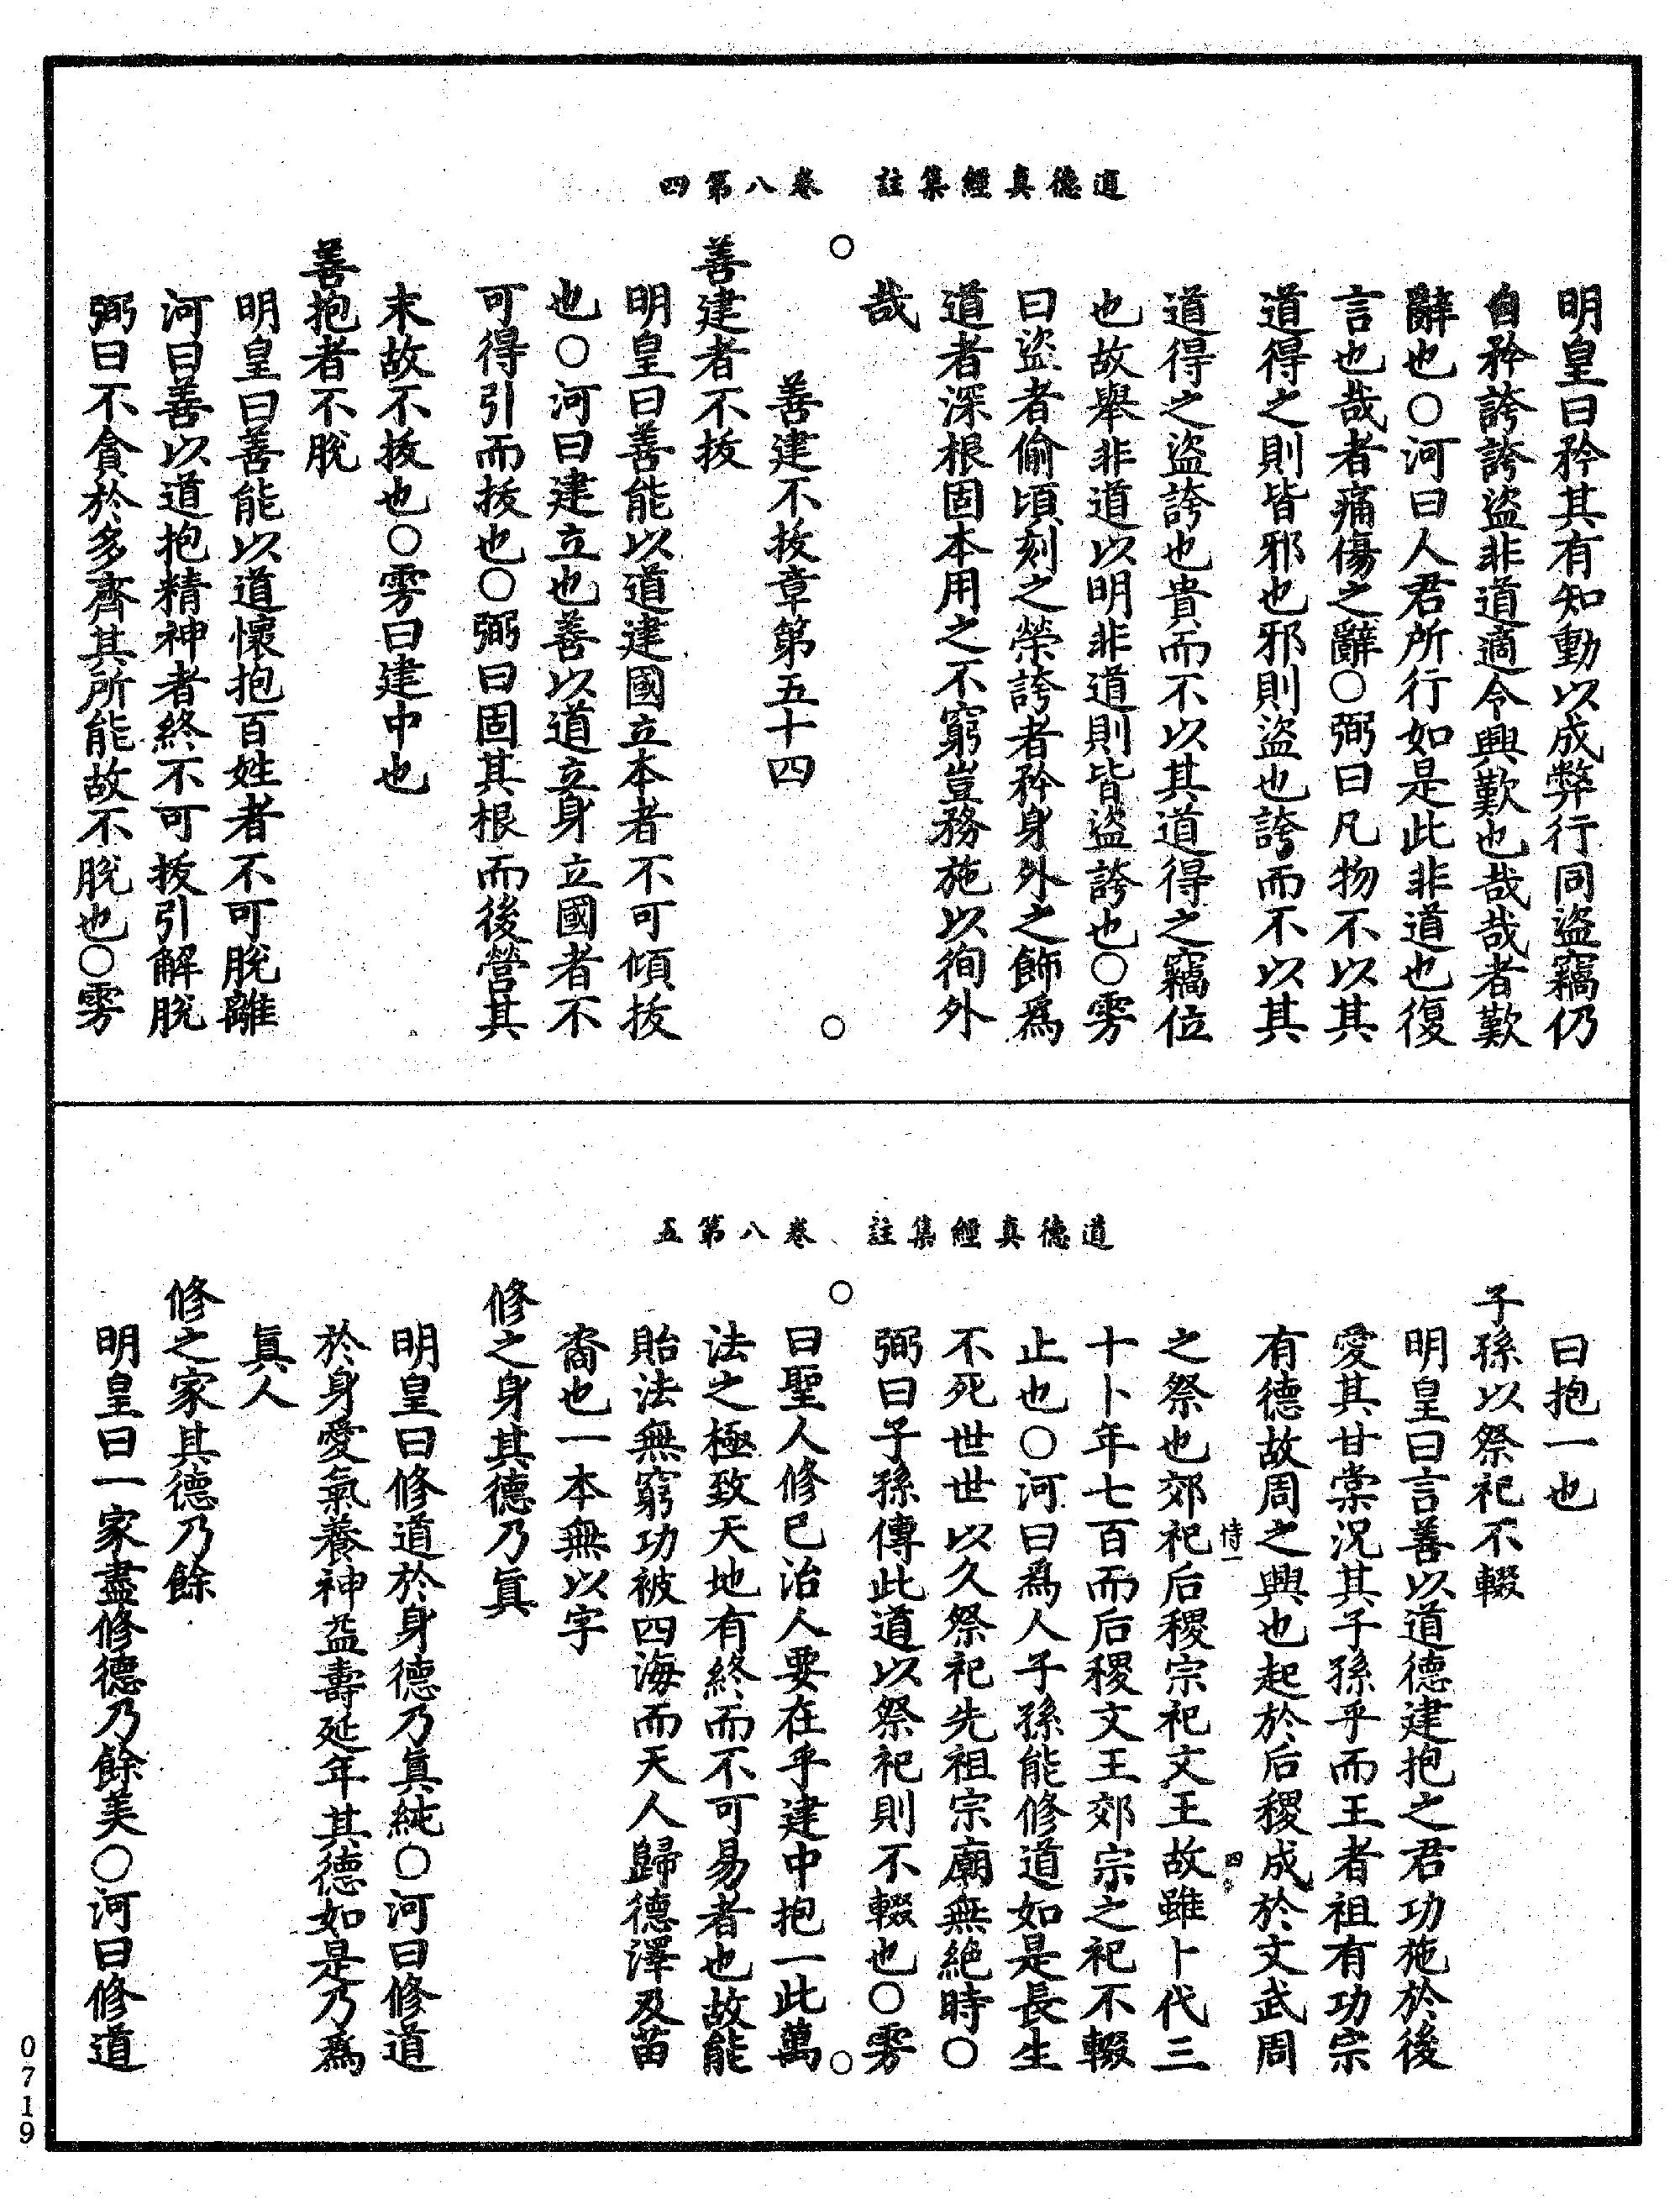 道德真經集註　卷八第四
明皇曰矜其有知動以成弊行同盜竊仍
自矜誇誇盜非道適令興歎也哉哉者歎
辭也○河曰人君所行如是此非道也復
言也哉者痛傷之辭○弼曰凡物不以其
道得之則皆邪也邪則盜也誇而不以其
道得之盜誇也貴而不以其道得之竊位
也故舉非道以明非道則皆盜誇也○雱
曰盜者偷頃刻之榮誇者矜身外之飾爲
道者深根固本用之不窮豈務施以徇外
哉
善建不拔章第五十四
善建者不拔
明皇曰善能以道建國立本者不可傾拔
也○河曰建立也善以道立身立國者不
可得引而拔也○弼曰固其根而後營其
末故不拔也○雱曰建中也
善抱者不脫
明皇曰善能以道懷抱百姓者不可脫離
河曰善以道抱精神者終不可拔引解脫
弼曰不貪於多齊其所能故不脫也○雱
道德真經集註　卷八第五
曰抱一也
子孫以祭祀不輟
明皇曰言善以道德建抱之君功施於後
愛其甘棠況其子孫乎而王者祖有功宗
有德故周之興也起於后稷成於文武周
之祭也郊祀后稷宗祀文王故雖卜代三
十卜年七百而后稷文王郊宗之祀不輟
止也○河曰爲人子孫能修道如是長生
不死世世以久祭祀先祖宗廟無絕時○
弼曰子孫傳此道以祭祀則不輟也○雱
曰聖人修已治人要在乎建中抱一此萬
法之極致天地有終而不可易者也故能
貽法無窮功被四海而天人歸德澤及苗
裔也一本無以字
修之身其德乃眞
明皇曰修道於身德乃眞純○河曰修道
於身愛氣養神益壽延年其德如是乃爲
眞人
修之家其德乃餘
明皇曰一家盡修德乃餘美○河曰修道
0719